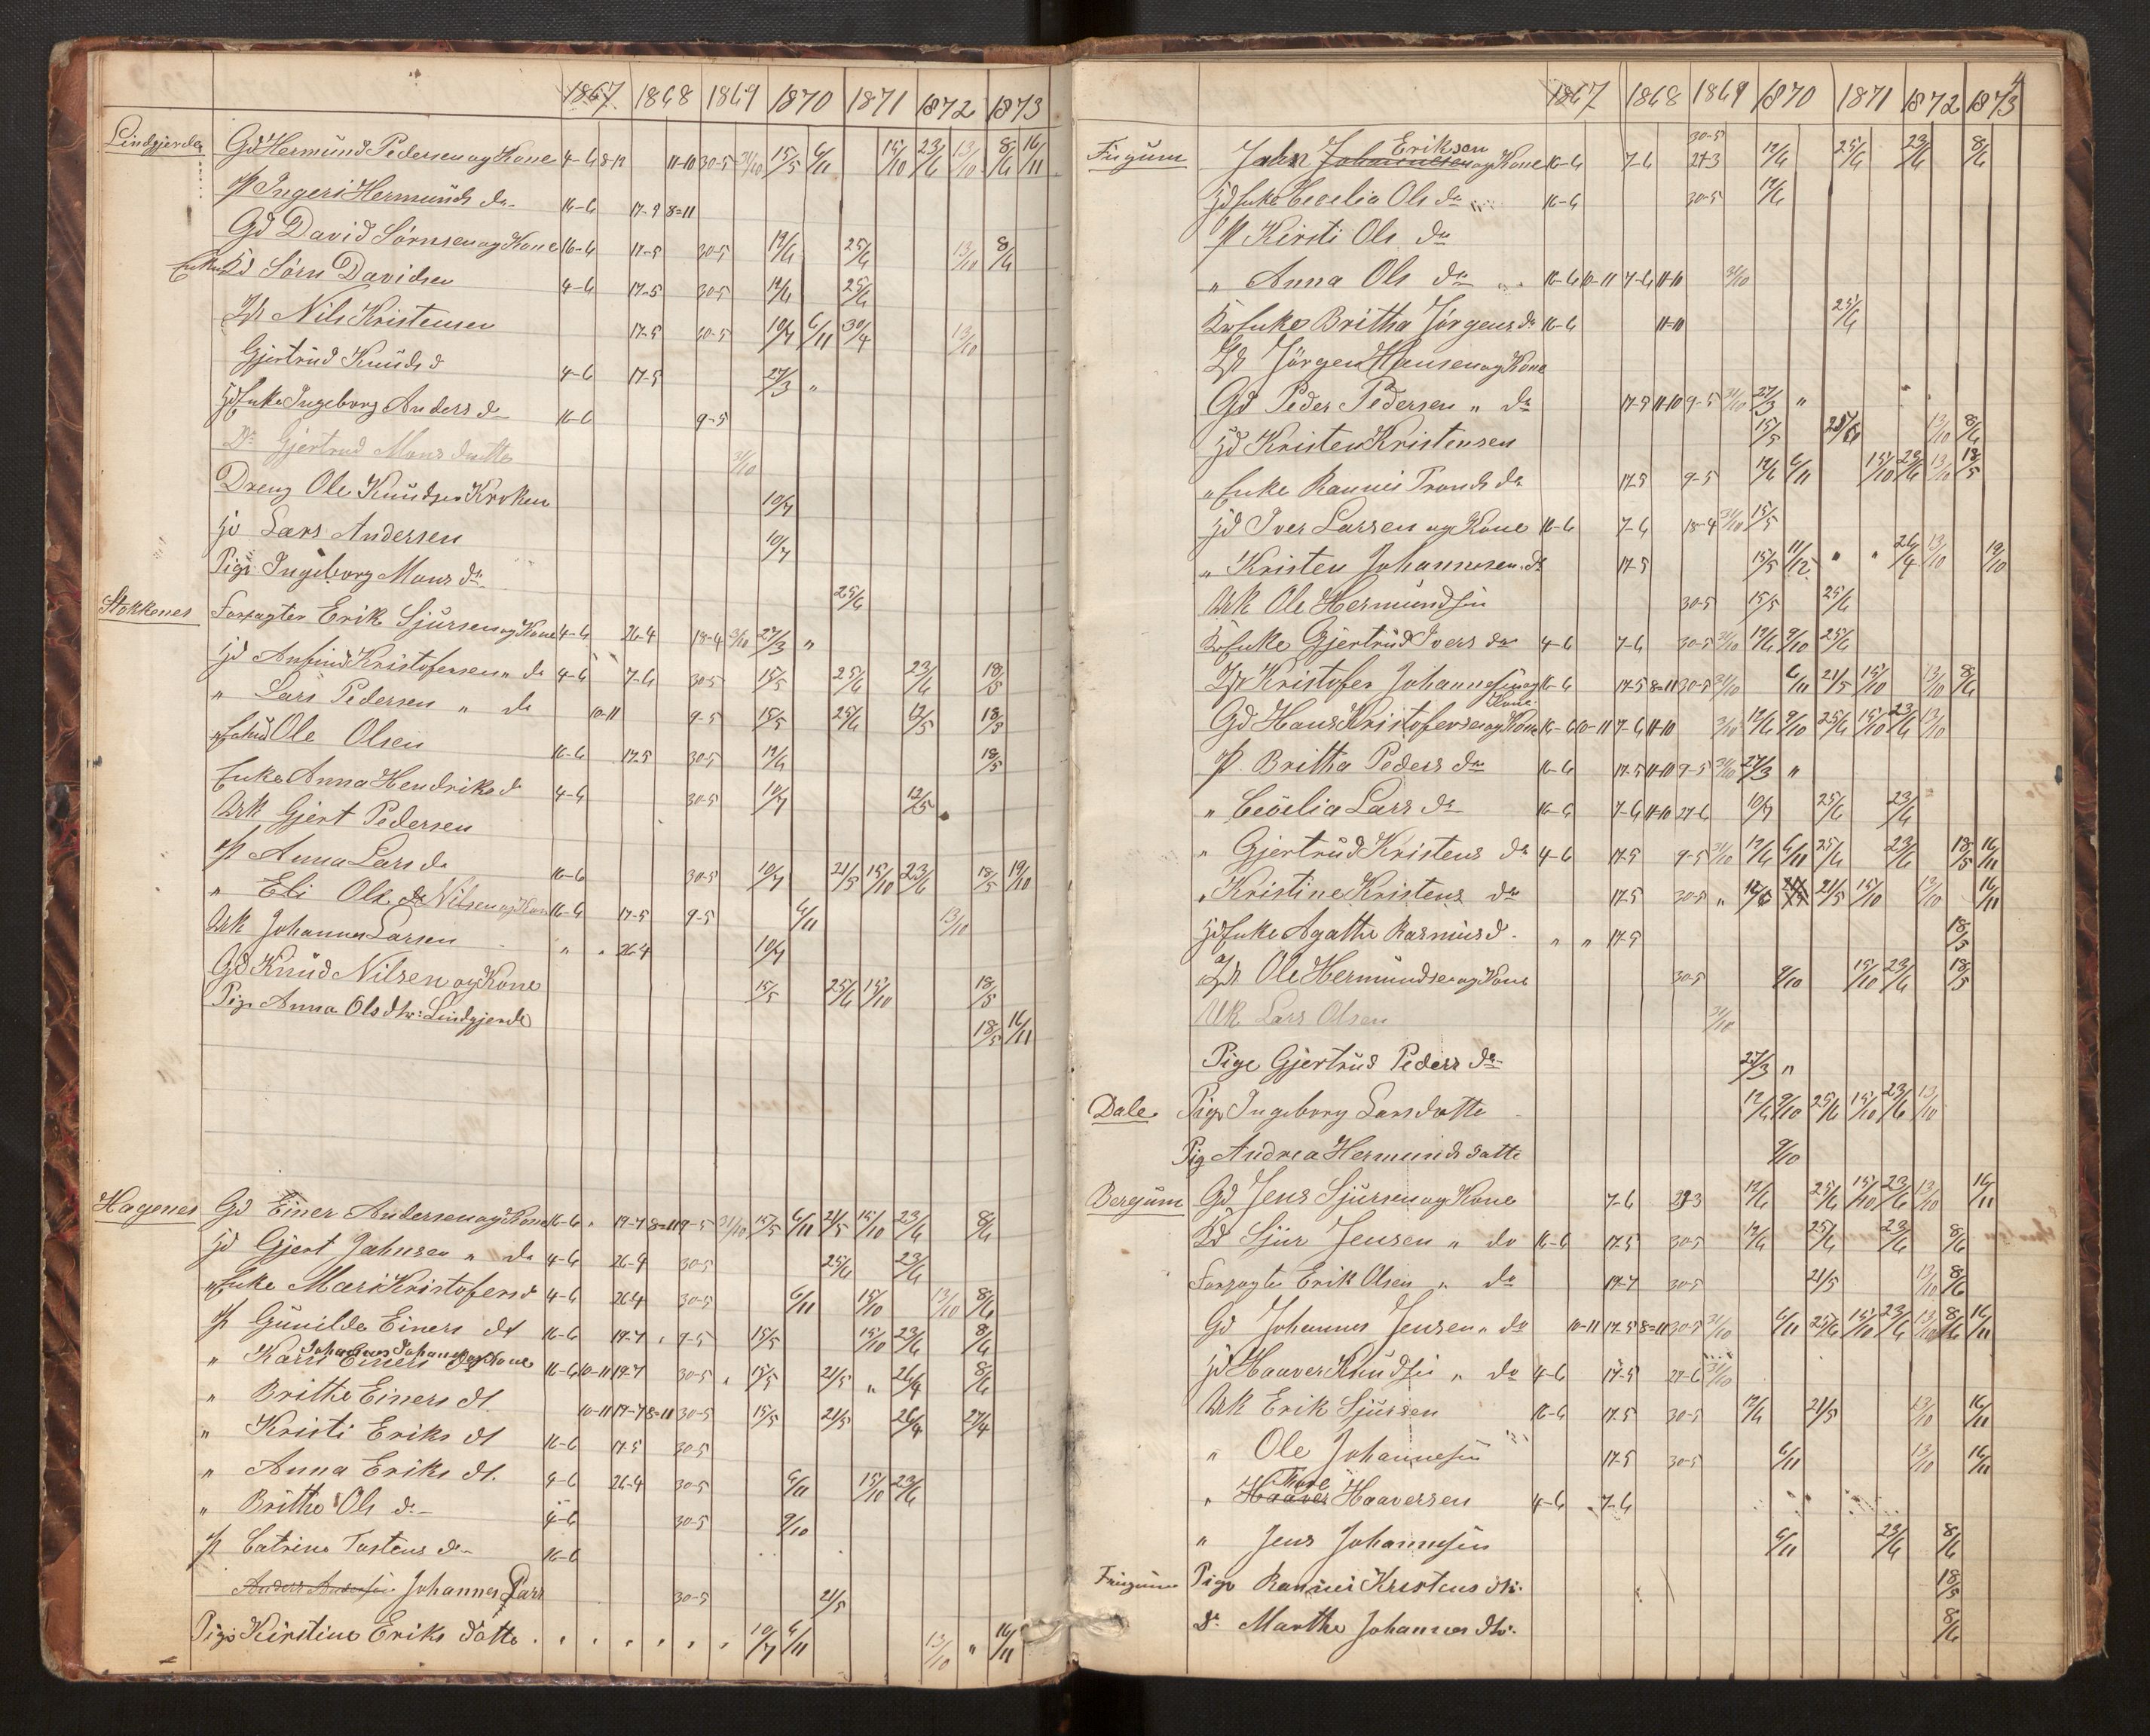 1867 1868 1869 1870 1871 1872 1873
Lindgjerde Gd Hermund Pedersen og Kone 4-6 8-12 11-10 30-5 31/10 15/5 6/11 15/10 23/6 13/10 8/6 16/11
p Ingeri Hermunds da 16-6 17-9 8=11
Gd David Sørnsen og Kone 16-6 17-5 30-5 12/6 25/6 13/10 8/6
Enke Kd Sørn Davidsen 4-6 17-5 30-5 12/6 25/6
Nils Kristensen 17-5 30-5 10/7 6/11 30/4 13/10
Gjertrud Knuds d 4-6 17-5 27/3 "
Enke Ingeborg Anders da 16-6 9-5
Do Gjertrud Mons datte 31/10
Dreng Ole Knudsen Kroken 10/7
Lars Andersen 10/7
Pige Ingeborg Mons da 25/6
Stokkenes Forpagter Erik Sjursen og Kone 4-6 26-4 18-4 31/10 27/3 "
Jd Anfind Kristofersen " do 4-6 7-6 30-5 15/5 25/6 23/6 18/5
" Lars Pedersen " do 10-11 9-5 15/5 25/6 12/5 18/5
Ole Olsen 16-6 17-5 30-5 12/6 18/5
Enke Anna Hendriks d 4-6 30-5 10/7 12/5
Urk Gjert Pedersen
p Anna Lars da 16-6 30-5 10/7 21/5 15/10 23/6 18/5 19/10
" Eli Ols da Nilsen og Kone 16-6 17-5 9-5 6/11 13/10
Urk Johannes Larsen " " 26-4 10/7
Gd Knud Nilsen og Kone 15/5 25/6 15/10 18/5
Pige Anna Ols dtr: Lindgjerde 18/5 16/11
Hagenes Gd Einer Andersen og Kone 16-6 " 17-7 8=11 9-5 31/10 15/5 6/11 21/5 15/10 23/6 8/6
Jd Gjert Jahnsen " do 4-6 26-9 30-5 25/6 23/6
" Enke Mari Kristofers d 4-6 26-4 30-5 6/11 15/10 13/10 8/6
p Gunilde Einers dt 16-6 17-7 " 9-5 15/5 15/10 23/6 8/6
Johannes Johannes og Kone
" Kari Einers dt 16-6 10-11 17-7 30-5 " 15/5 21/5 " 26/4 8/6
" Brithe Einers dt 10-11 17-7 8=11 30-5 15/5 21/5 26/4 27/4
" Kristi Eriks dt 16-6 17-5 30-5
" Anna Eriks dt. 4-6 26-4 30-5 6/11 15/10 23/6
" Brithe Ols da 4-6 30-5 9/10
p Catrine Tostens da 16-6
Johannes Lars 30-5 21/5
Pige Kirstine Eriks datte " " " " " " 10/7 6/11 13/10 " 16/11
4
1867 1868 1869 1870 1871 1872 1873
Eriksen 30-5
Fugum Jahn Johannesen og Kone 16-6 7-6 21-3 12/6 25/6 23/6 8/6
Jd Enke Cecelia Ols da 16-6 30-5 12/6
p Kirsti Ols da
" Anna Ols da 16-6 10-11 7-6 11-10 31/10
Enke Britha Jørgens da 16-6 11-10 25/6
Jørgen Hansen og Kone
Gd Peder Pedersen " do 17-5 11-10 9-5 31/10 27/3 "
Jd Kristen Kristensen 15/5 25/6 13/10 8/6
" Enke Rannei Tronds da 17-5 9-5 12/6 6/11 15/10 23/6 13/10 18/5
Jd Iver Larsen og Kone 16-6 7-6 18-4 31/10 15/5
" Kristen Johannesen do 17-5 15/5 11/12 " " 26/4 13/10 19/10
Urk Ole Hermundsen 30-5 15/5 25/6
Enke Gjertrud Ivers da 4-6 7-6 30-5 31/10 12/6 9/10 25/6
Kristofer Johannesen og Kone 16-6 17-5 8=11 30-5 31/10 6/11 21/5 15/10 13/10 8/6
Gd Hans Kristofersen og Kone 16-6 10-11 7-6 11-10 31/10 12/6 9/10 25/6 15/10 23/6 13/10
p. Britha Peders da 16-6 17-5 11-10 9-5 31/10 27/3 "
" Cecelia Lars da 16-6 7-6 11-10 27-6 10/7 25/6 23/6
" Gjertrud Kristens da 4-6 17-5 9-5 31/10 12/6 6/11 25/6 23/6 18/5 16/11
" Kristine Kristens da 17-5 30-5 " 12/6 21/5 15/10 13/10 16/11
Jd Enke Agathe Rasmus d. " " 17-5 18/5
Ole Hermundsen og Kone 30-5 9/10 15/10 23/6 18/5
Urk Lars Olsen 31/10
Pige Gjertrud Peders da 27/3 "
Dale Pige Ingeborg Larsdatte 12/6 9/10 25/6 15/10 23/6 13/10
Pig Andrea Hermunds datte 9/10
Bergum Gd Jens Sjursen og Kone 7-6 29-3 12/6 25/6 15/10 23/6 13/10 16/11
Kd Sjur Jensen " do 16-6 17-5 30-5 12/6 25/6 23/6 8/6
Forpagter Erik Olsen " do 17-7 30-5 21/5 13/10 8/6
Gd Johannes Jensen " do 10-11 17-5 8=11 30-5 31/10 6/11 25/6 15/10 23/6 13/10 8/6 16/11
Jd Haaver Knudsen " do 4-6 17-5 27-6 31/10
Urk Erik Sjursen 16-6 17-5 30-5 12/6 21/5 13/10 16/11
" Ole Johannesen 17-5 30-5 6/11 13/10 16/11
" Haaver Haaversen 4-6 7-6
" Jens Johannesen 6/11 23/6 8/6
Fuugum Pige Rannei Kristens dtr. 18/5
Do Marthe Johannes dtr. 8/6